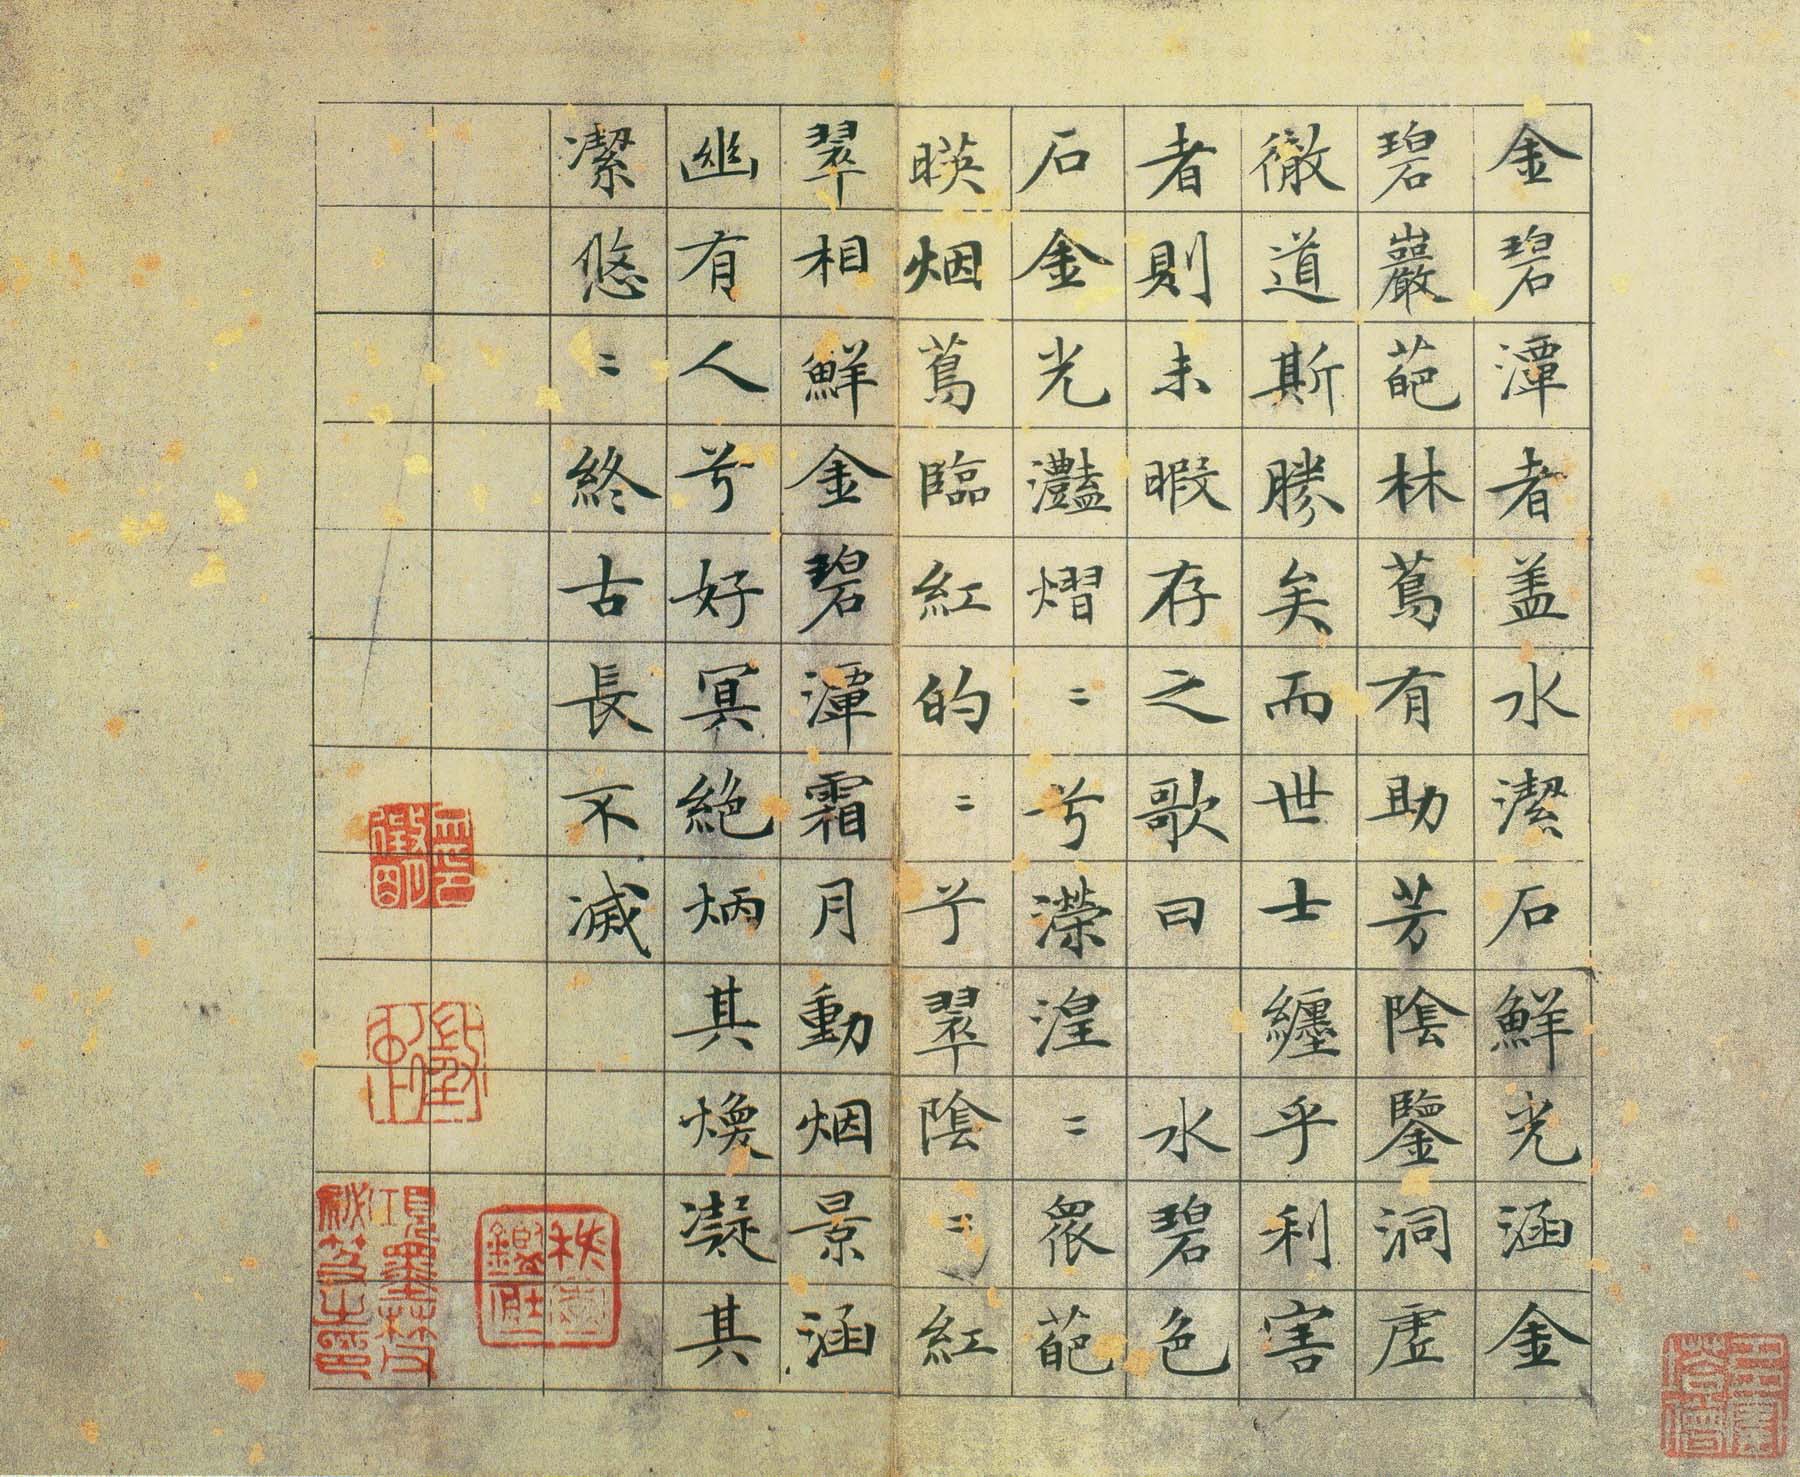 金碧潭者盖水潔石鮮光涵金
碧巖葩林蔦有助芳陰鑒洞虛
徹道斯勝矣而世士纏乎利害
者則未暇存之歌曰　水碧色
石金光灩熠〻兮瀠湟〻衆葩
暎烟蔦臨紅的〻兮翠陰〻紅
翠相鮮金碧潭霜月動烟景涵
幽有人兮好冥絶炳其煥凝其
潔悠〻終古長不滅
項墨林父秘笈之印